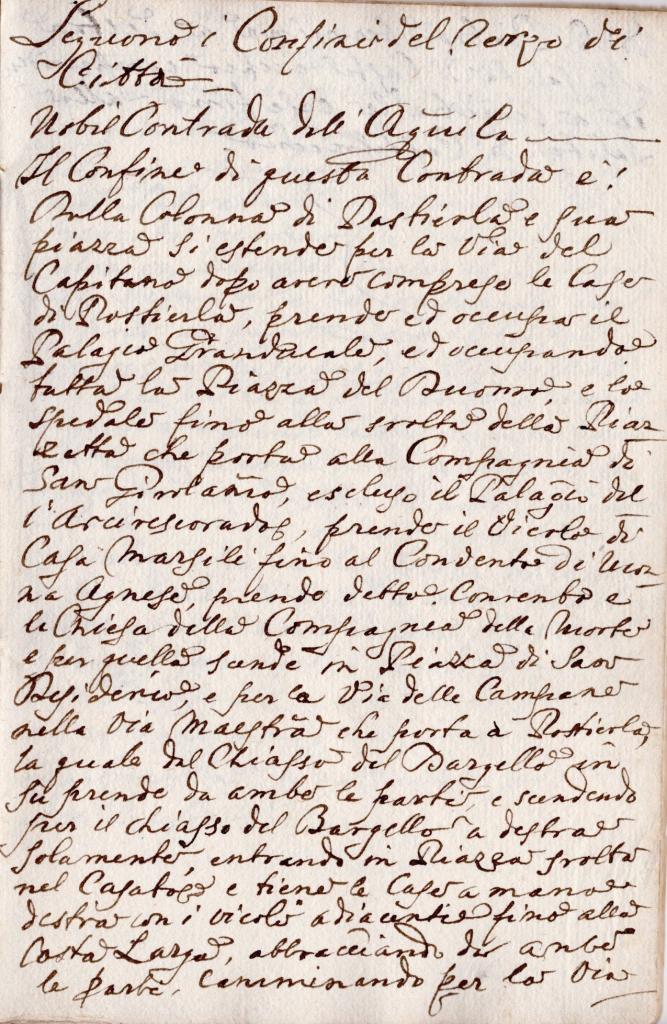 Seguono i Confini del Terzo di
Città
Nobil Contrada dell' Aquila
Il Confine di questa Contrada e'!
Dalla Colonna di Postierla e sua
piazza si estende per la Via del
Capitano dopo avere compreso le Case
di Postierla, prende ed occupa il
Palagio Granducale, ed occupando
tutta la Piazza del Duomo, e lo
spedale fino alla svolta della Piaz
zetta che porta alla Compagnia di
San Girolamo, escluso il Palagio del
l'Arcivescovado, prende il Vicolo di
Casa Marsili fino al Convento di Mon
na Agnese, prende detto Convento e
la Chiesa della Compagnia della Morte
e per quella scende in Piazza di San
Desiderio, e per la Via delle Campane
nella Via Maestra che porta a Postierla,
la quale dal Chiasso del Bargello in
su prende da ambo le parti, e scendendo
per il chiasso del Bargello a destra
solamente, entrando in Piazza svolta
nel Casato e tiene le Case a mano
destra con i vicoli adiacenti fino alla
Costa Larga, abbracciando da ambo
le parti. Camminando per la Via